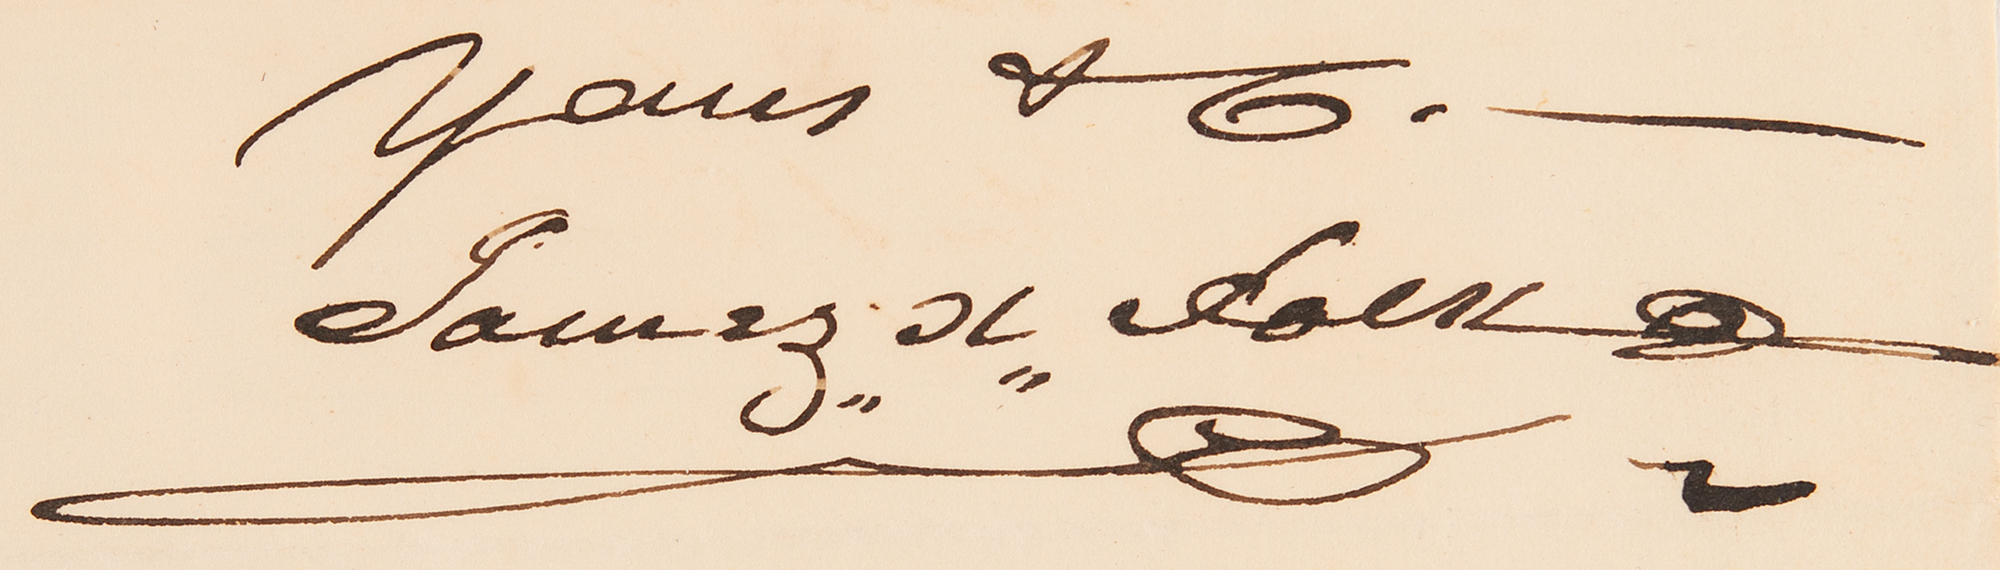 Yours &c.
James K Polk